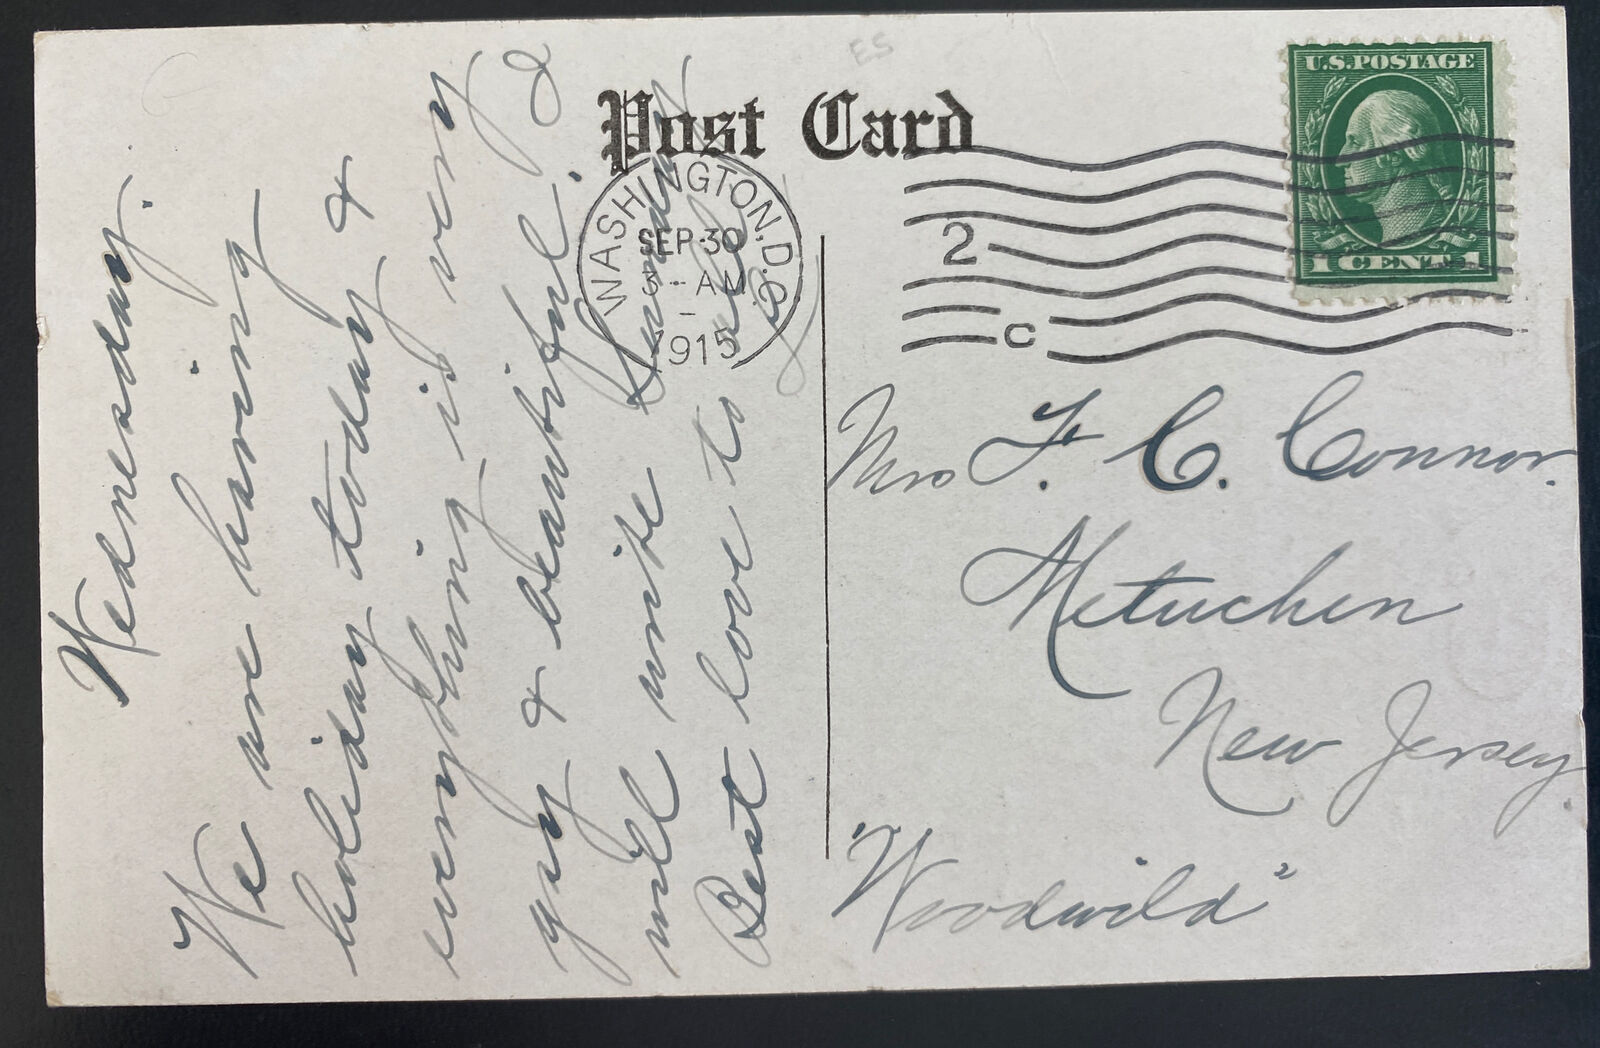 ES
Post Card
U.S. POSTAGE
1 CENT 1
WASHINGTON, D.C.
SEP 30
3 - AM
1915
2
C
Wednesday.
We are having
holiday today &
everything is very
gay & beautiful. I
will write Sunday
Best love to all
Mrs F. C. Connor.
Metuchen
New Jersey.
"Woodwild"